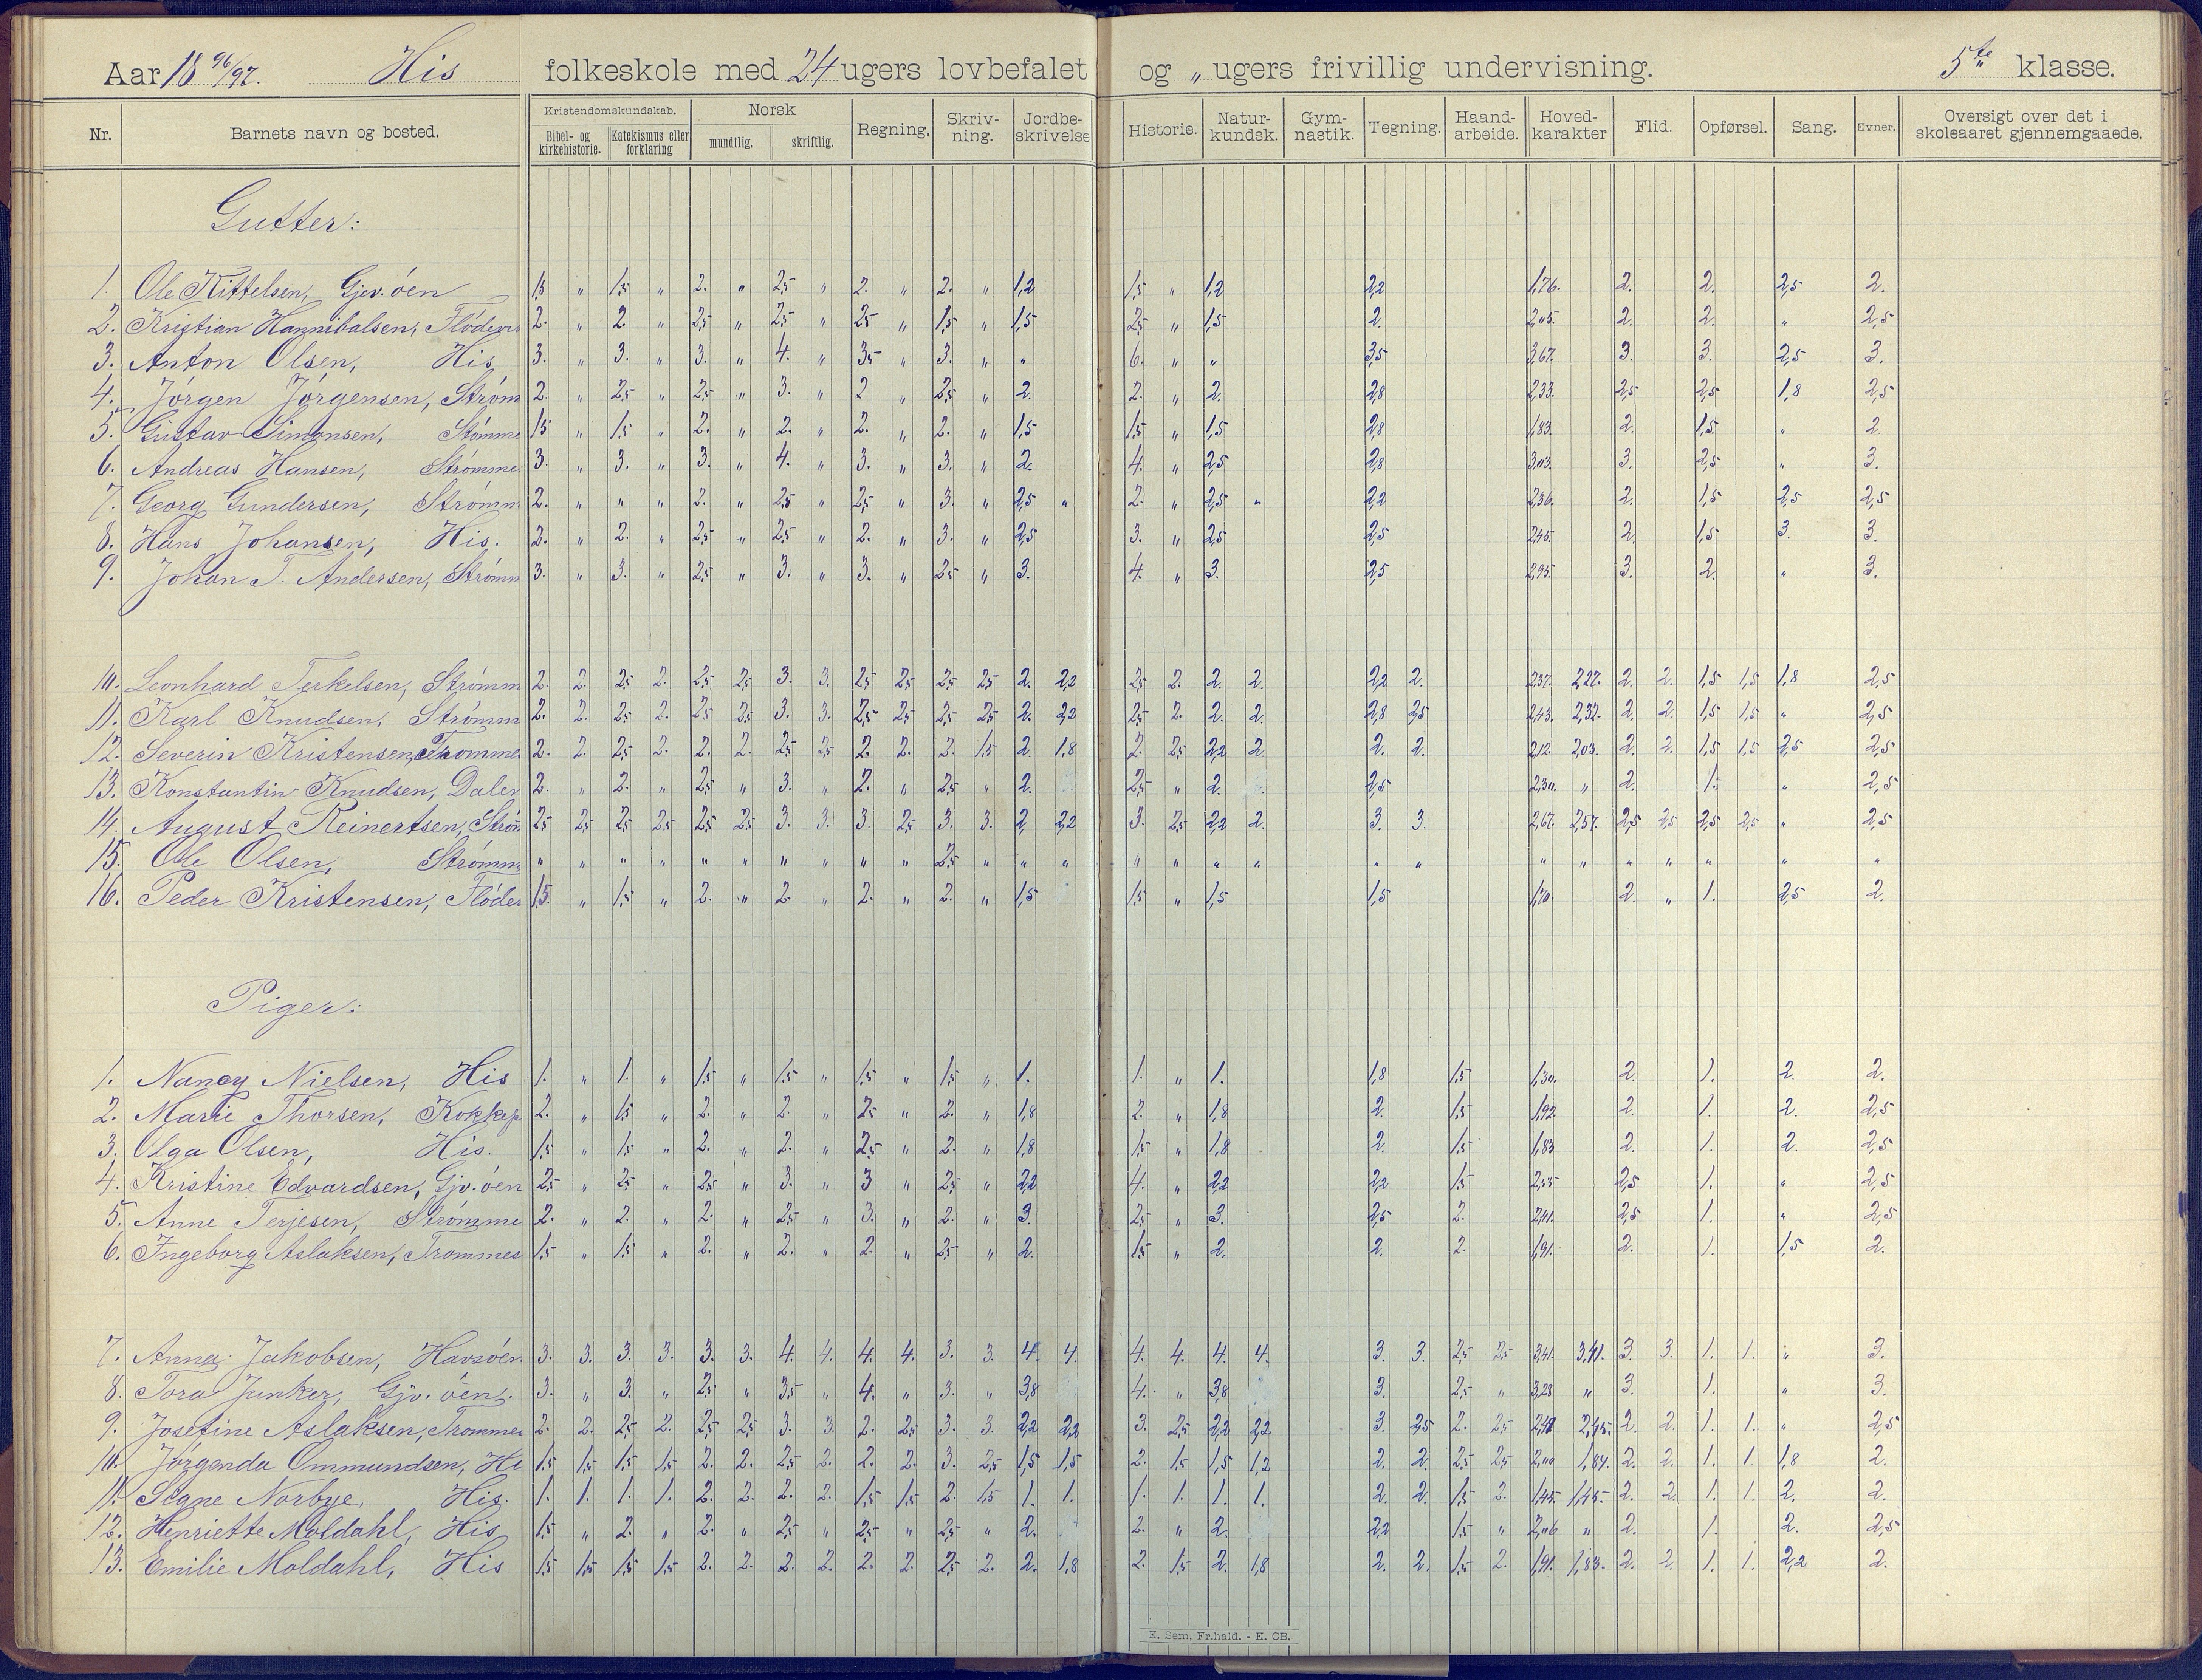 Aar 18 96/97. His folkeskole med 24 ugers lovbefalet og „ ugers frivillig undervisning. 5te klasse.
Nr. Barnets navn og bosted. Kristendomskundskab. Norsk Regning. Skriv-ning. Jordbe-skrivelse Historie. Natur-kundsk. Gym-nastik. Tegning. Haand-arbeide. Hoved-karakter Flid. Opførsel. Sang. Evner. Oversigt over det i skoleaaret gjennemgaaede.
Bibel- og kirkehistorie. Katekismus eller forklaring mundtlig. skriftlig.
Gutter:
1. Ole Kittelsen, Gjev.öen 1,5 „ 1,5 „ 2. „ 2,5 „ 2. „ 2. „ 1,2 1,5 „ 1,2 2,2 1,76. 2. 2. 2,5 2.
2. Kristian Hannibalsen, Flödevi 2. „ 2. „ 2,5 „ 2,5 „ 2,5 „ 1,5 „ 1,5 2,5 „ 1,5 2. 2,05. 2. 2. „ 2,5
3. Anton Olsen, His 3. „ 3. „ 3. „ 4. „ 3,5 „ 3. „ „ 6. „ „ 3,5 3,67. 3. 3. 2,5 3.
4. Jörgen Jörgensen, Ström 2. „ 2,5 „ 2,5 „ 3. „ 2 „ 2,5 „ 2. 2. „ 2. 2,8 2,33. 2,5 2,5 1,8 2,5
5. Gustav Simonsen, Stömme 1,5 „ 1,5 „ 2. „ 2. „ 2. „ 2. „ 1,5 1,5 „ 1,5 2,8 1,83. 2. 1,5 „ 2.
6. Andreas Hansen, Strömme 3. „ 3. „ 3. „ 4. „ 3. „ 3. „ 2. 4. „ 2,5 2,8 3,03. 3. 2,5 „ 3.
7. Georg Gundersen, Strömm 2. „ „ „ 2. „ 2,5 „ 2,5 „ 3. „ 2,5 „ 2. „ 2,5 „ 2,2 2,36. 2. 1,5 2,5 2,5
8. Hans Johansen, His. 2. „ 2. „ 2,5 „ 2,5 „ 2. „ 3. „ 2,5 3. „ 2,5 2,5 2,45. 2. 1,5 3. 3.
9. Johan T. Andersen, Strömm 3. „ 3. „ 2,5 „ 3. „ 3. „ 2,5 „ 3. 4. „ 3. 2,5 2,95. 3. 2. „ 3.
10. Leonhard Terkelsen, Strömm 2. 2. 2,5 2. 2,5 2,5 3. 3. 2,5 2,5 2,5 2,5 2. 2,2 2,5 2. 2. 2. 2,2 2. 2,37. 2,27. 2. 2. 1,5 1,5 1,8 2,5
11. Karl Knudsen, Strömm 2. 2. 2,5 2. 2,5 2,5 3. 3. 2,5 2,5 2,5 2,5 2. 2,2 2,5 2. 2. 2. 2,8 2,5 2,43. 2,32. 2. 2. 1,5 1,5 „ 2,5
12. Severin Kristensen, Tromme 2. 2. 2,5 2. 2. 2. 2,5 2,5 2. 2. 2. 1,5 2. 1,8 2. 2,5 2,2 2. 2. 2. 2,12. 2,03. 2. 2. 1,5 1,5 2,5 2,5
13. Konstantin Knudsen, Dalen 2. „ 2. „ 2,5 „ 3. „ 2. „ 2,5 „ 2. 2,5 „ 2. 2,5 2,30. „ 2. 1. „ 2,5
14. August Reinertsen, Ström 2,5 2,5 2,5 2,5 2,5 2,5 3. 3. 3. 2,5 3. 3. 2. 2,2 3. 2,5 2,2 2. 3. 3. 2,67. 2,57. 2,5 2,5 2,5 2,5 „ 2,5
15. Ole Olsen, Strömm „ „ „ „ „ „ „ „ „ „ 2,5 „ „ „ „ „ „ „ „ „ „ „ „ „ „ „ „
16. Peder Kristensen, Flöde 1,5. „ 1,5 „ 2. „ 2. „ 2. „ 2. „ 1,5 1,5 „ 1,5 1,5 1,70. 2. „ 1. 2,5 2.
Piger:
1. Nancy Nielsen, His 1. „ 1. „ 1,5 „ 1,5 „ 1,5 „ 1,5 „ 1. 1. „ 1. 1,8 1,5 1,30. 2. 1. 2. 2.
2. Marie Thorsen, Kokkep 2. „ 1,5 „ 2. „ 2. „ 2,5 „ 2. „ 1,8 2. „ 1,8 2. 1,5 1,92. 2. 1. 2. 2,5
3. Olga Olsen, His. 1,5 „ 1,5 „ 2. „ 2. „ 2,5 „ 2. „ 1,8 1,5 „ 1,8 2. 1,5 1,83 2. 1. 2. 2,5
4. Kristine Edvardsen, Gjv.öen 2,5 „ 2,5 „ 2,5 „ 3. „ 3 „ 2,5 „ 2,2 4. „ 2,2 2,2 1,5 2,55 2,5 1. „ 2,5
5. Anne Terjesen, Strömme 2. „ 2. „ 2. „ 2,5 „ 3. „ 2. „ 3. 2,5 „ 3. 2,5 2. 2,41. 2,5 1. „ 2,5
6. Ingeborg Aslaksen, Trommes 1,5 „ 1,5 „ 2. „ 2. „ 2. „ 2,5 „ 2. 1,5 „ 2. 2. 2. 1,91. 2. 1. 1,5 2.
7. Anna Jakobsen, Havsöen 3. 3. 3. 3. 3. 3. 4. 4. 4. 4. 3. 3. 4. 4. 4. 4. 4. 4. 3. 3. 2,5 2,5 3,41. 3,41. 3. 3. 1. 1. „ 3.
8. Tora Junker, Gjv. öen. 3. „ 3. „ 2,5 „ 3,5 „ 4. „ 3. „ 3,8 4. „ 3,8 3. 2,5 „ 3,28 „ 3. 1. „ 3.
9. Josefine Aslaksen, Trommes 2. 2. 2,5 2. 2,5 2,5 3. 3. 2. 2,5 3. 3. 2,2 2,2 3. 2,5 2,2 2,2 3. 2,5 2. 2,5 2,45. 2. 2. 1. 1. „ 2,5
10. Jörganda Ommundsen, Hi 1,5 1,5 1,5 1,5 2. 2. 2,5 2. 2. 2. 3. 2,5 1,5 1,5 2. 1,5 1,5 1,2 2. 2. 2,5 2,5 2,00 1,84. 2. 2. 1. 1. 1,8 2.
11. Signe Norbye, His. 1. 1. 1. 1. 2. 2. 2. 2. 1,5 1,5 2. 1,5 1. 1. 1. 1. 1. 1. 2. 2. 1,5 2. 1,45. 1,45. 2. 2. 1. 1. 2. 2.
12. Henriette Moldahl, His 1,5 „ 2. „ 2. „ 2,5 „ 2,5 „ 2,5 „ 2. 2. „ 2. 2,2 1,5 „ 2,06 „ 2. 1. 2. 2,5
13. Emilie Moldahl, His 1,5 1,5 1,5 1,5 2. 2. 2. 2. 2. 2. 2,5 2. 2. 1,8 2. 1,5 2. 1,8 2. 2. 1,5 2. 1,91. 1,83. 2. 2. 1. 1. 2,2 2.
E. Sem, Fr.hald. - E. CB.